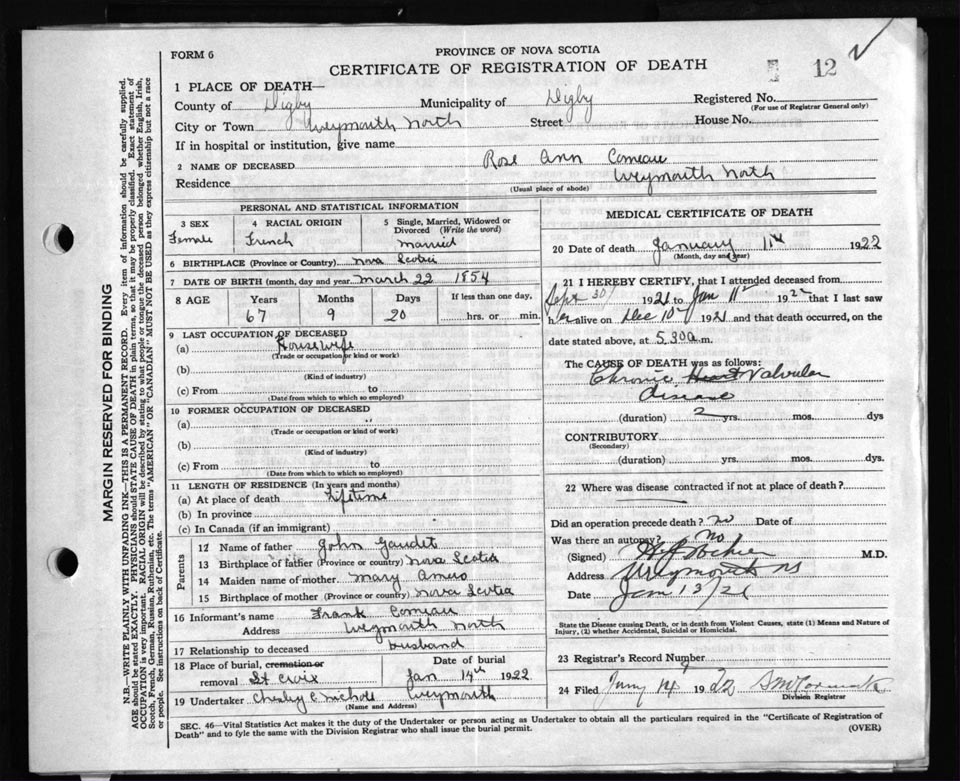 FORM 6
PROVINCE OF NOVA SCOTIA
CERTIFICATE OF REGISTRATION OF DEATH
12
1 PLACE OF DEATH—
County of Digby Municipality of Digby Registered No.
(For use of Registrar General only)
City or Town Weymouth North Street House No.
If in hospital or institution, give name
2 NAME OF DECEASED Rose Ann Comeau
Residence Weymouth North
(Usual place of abode)
PERSONAL AND STATISTICAL INFORMATION
3 SEX
Female
4 RACIAL ORIGIN
French
5 Single, Married, Widowed or
Divorced (Write the word)
Married
6 BIRTHPLACE (Province or Country) Nova Scotia
7 DATE OF BIRTH (month, day and year) March 22 1854
8 AGE Years Months Days If less than one day,
67 9 20 hrs. or min.
9 LAST OCCUPATION OF DECEASED
(a) Housewife
(Trade or occupation or kind of work)
(b)
(Kind of industry)
(c) From to
(Date from which to which so employed)
10 FORMER OCCUPATION OF DECEASED
(a)
(Trade or occupation or kind of work)
(b)
(Kind of industry)
(c) From to
(Date from which to which so employed)
11 LENGTH OF RESIDENCE (In years and months)
(a) At place of death Lifetime
(b) In province
(c) In Canada (if an immigrant)
Parents
12 Name of father John Gaudet
13 Birthplace of father (Province or country) Nova Scotia
14 Maiden name of mother Mary
15 Birthplace of mother (Province or country) Nova Scotia
16 Informant's name Frank Comeau
Address Weymouth North
17 Relationship to deceased husband
18 Place of burial, cremation or
removal St Croix
Date of burial
Jan 14th 1922
19 Undertaker Chesley C Nichols Weymouth
(Name and Address)
MEDICAL CERTIFICATE OF DEATH
20 Date of death January 11th 1922
(Month, day and year)
21 I HEREBY CERTIFY, that I attended deceased from
Sept 30 1921 to Jan 11th 1922 that I last saw
her alive on Dec 10th 1921 and that death occurred, on
the date stated above, at 5.30 a m.
The CAUSE OF DEATH was as follows:
Chronic Heart Valvular
disease
(duration) 2 yrs. mos. dys
CONTRIBUTORY
(Secondary)
(duration) yrs. mos. dys.
22 Where was disease contracted if not at place of death?
Did an operation precede death? no Date of
Was there an autopsy? no
(Signed) M.D.
Address Weymouth NS
Date Jan 13/21
State the Disease causing Death, or in death from Violent Causes, state (1) Means and Nature of
Injury, (2) whether Accidental, Suicidal or Homicidal.
23 Registrar's Record Number
24 Filed 14 1922
Division Registrar
SEC. 46—Vital Statistics Act makes it the duty of the Undertaker or person acting as Undertaker to obtain all the particulars required in the "Certificate of Registration of
Death" and to fyle the same with the Division Registrar who shall issue the burial permit. (OVER)
MARGIN RESERVED FOR BINDING
N.B.—WRITE PLAINLY WITH UNFADING INK—THIS IS A PERMANENT RECORD. Every item of information should be carefully supplied.
AGE should be stated EXACTLY. PHYSICIANS should STATE CAUSE OF DEATH in plain terms, so that it may be properly classified. Exact statement of
OCCUPATION is very important. RACIAL ORIGIN will be described by stating to what people or tongue the deceased person belonged whether English, Irish,
Scotch, French, German, Russian, Ruthenian, etc. The terms "AMERICAN" OR "CANADIAN" MUST NOT BE USED as they express citizenship but not a race
or people. See instructions on back of Certificate.